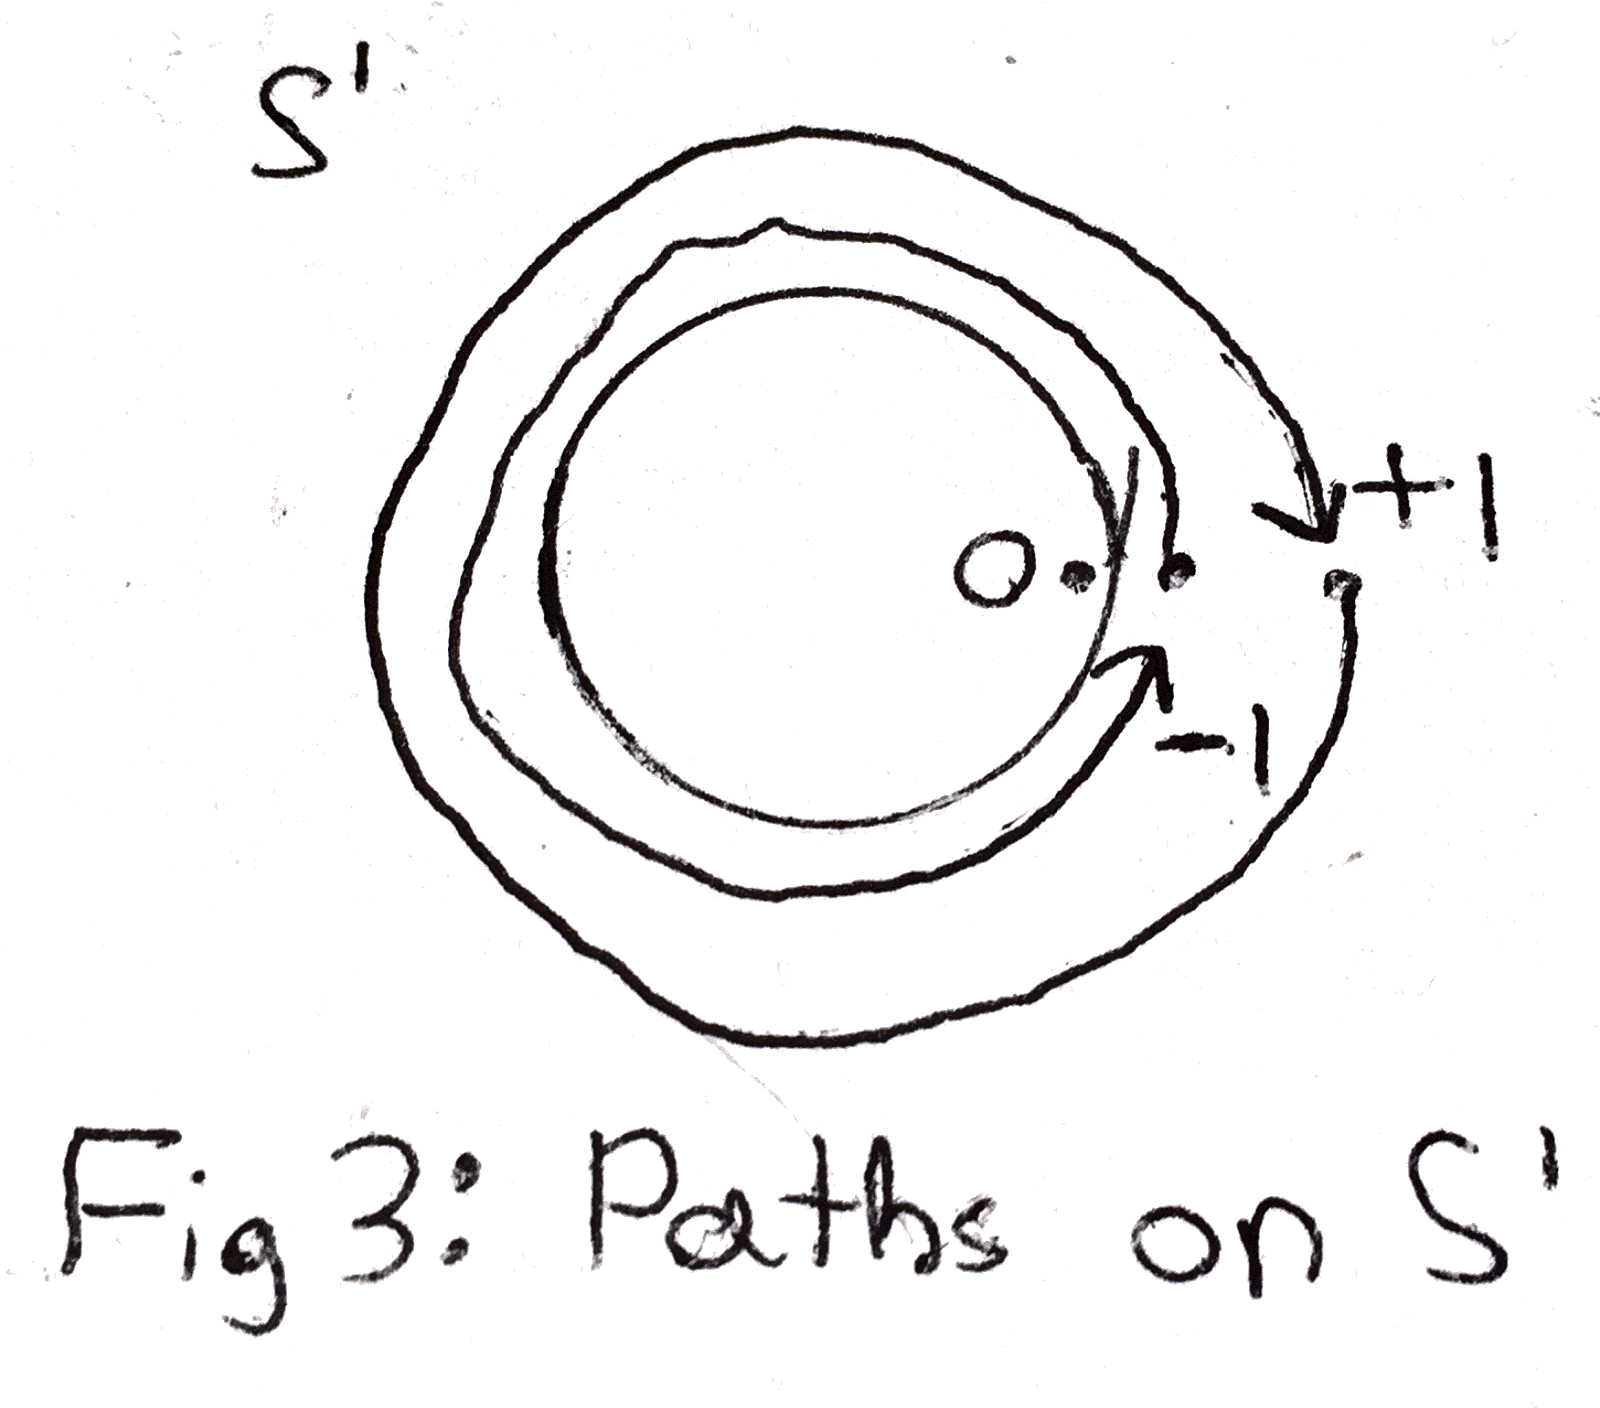 S'
+1
O
-1
Fig 3: Paths on S'